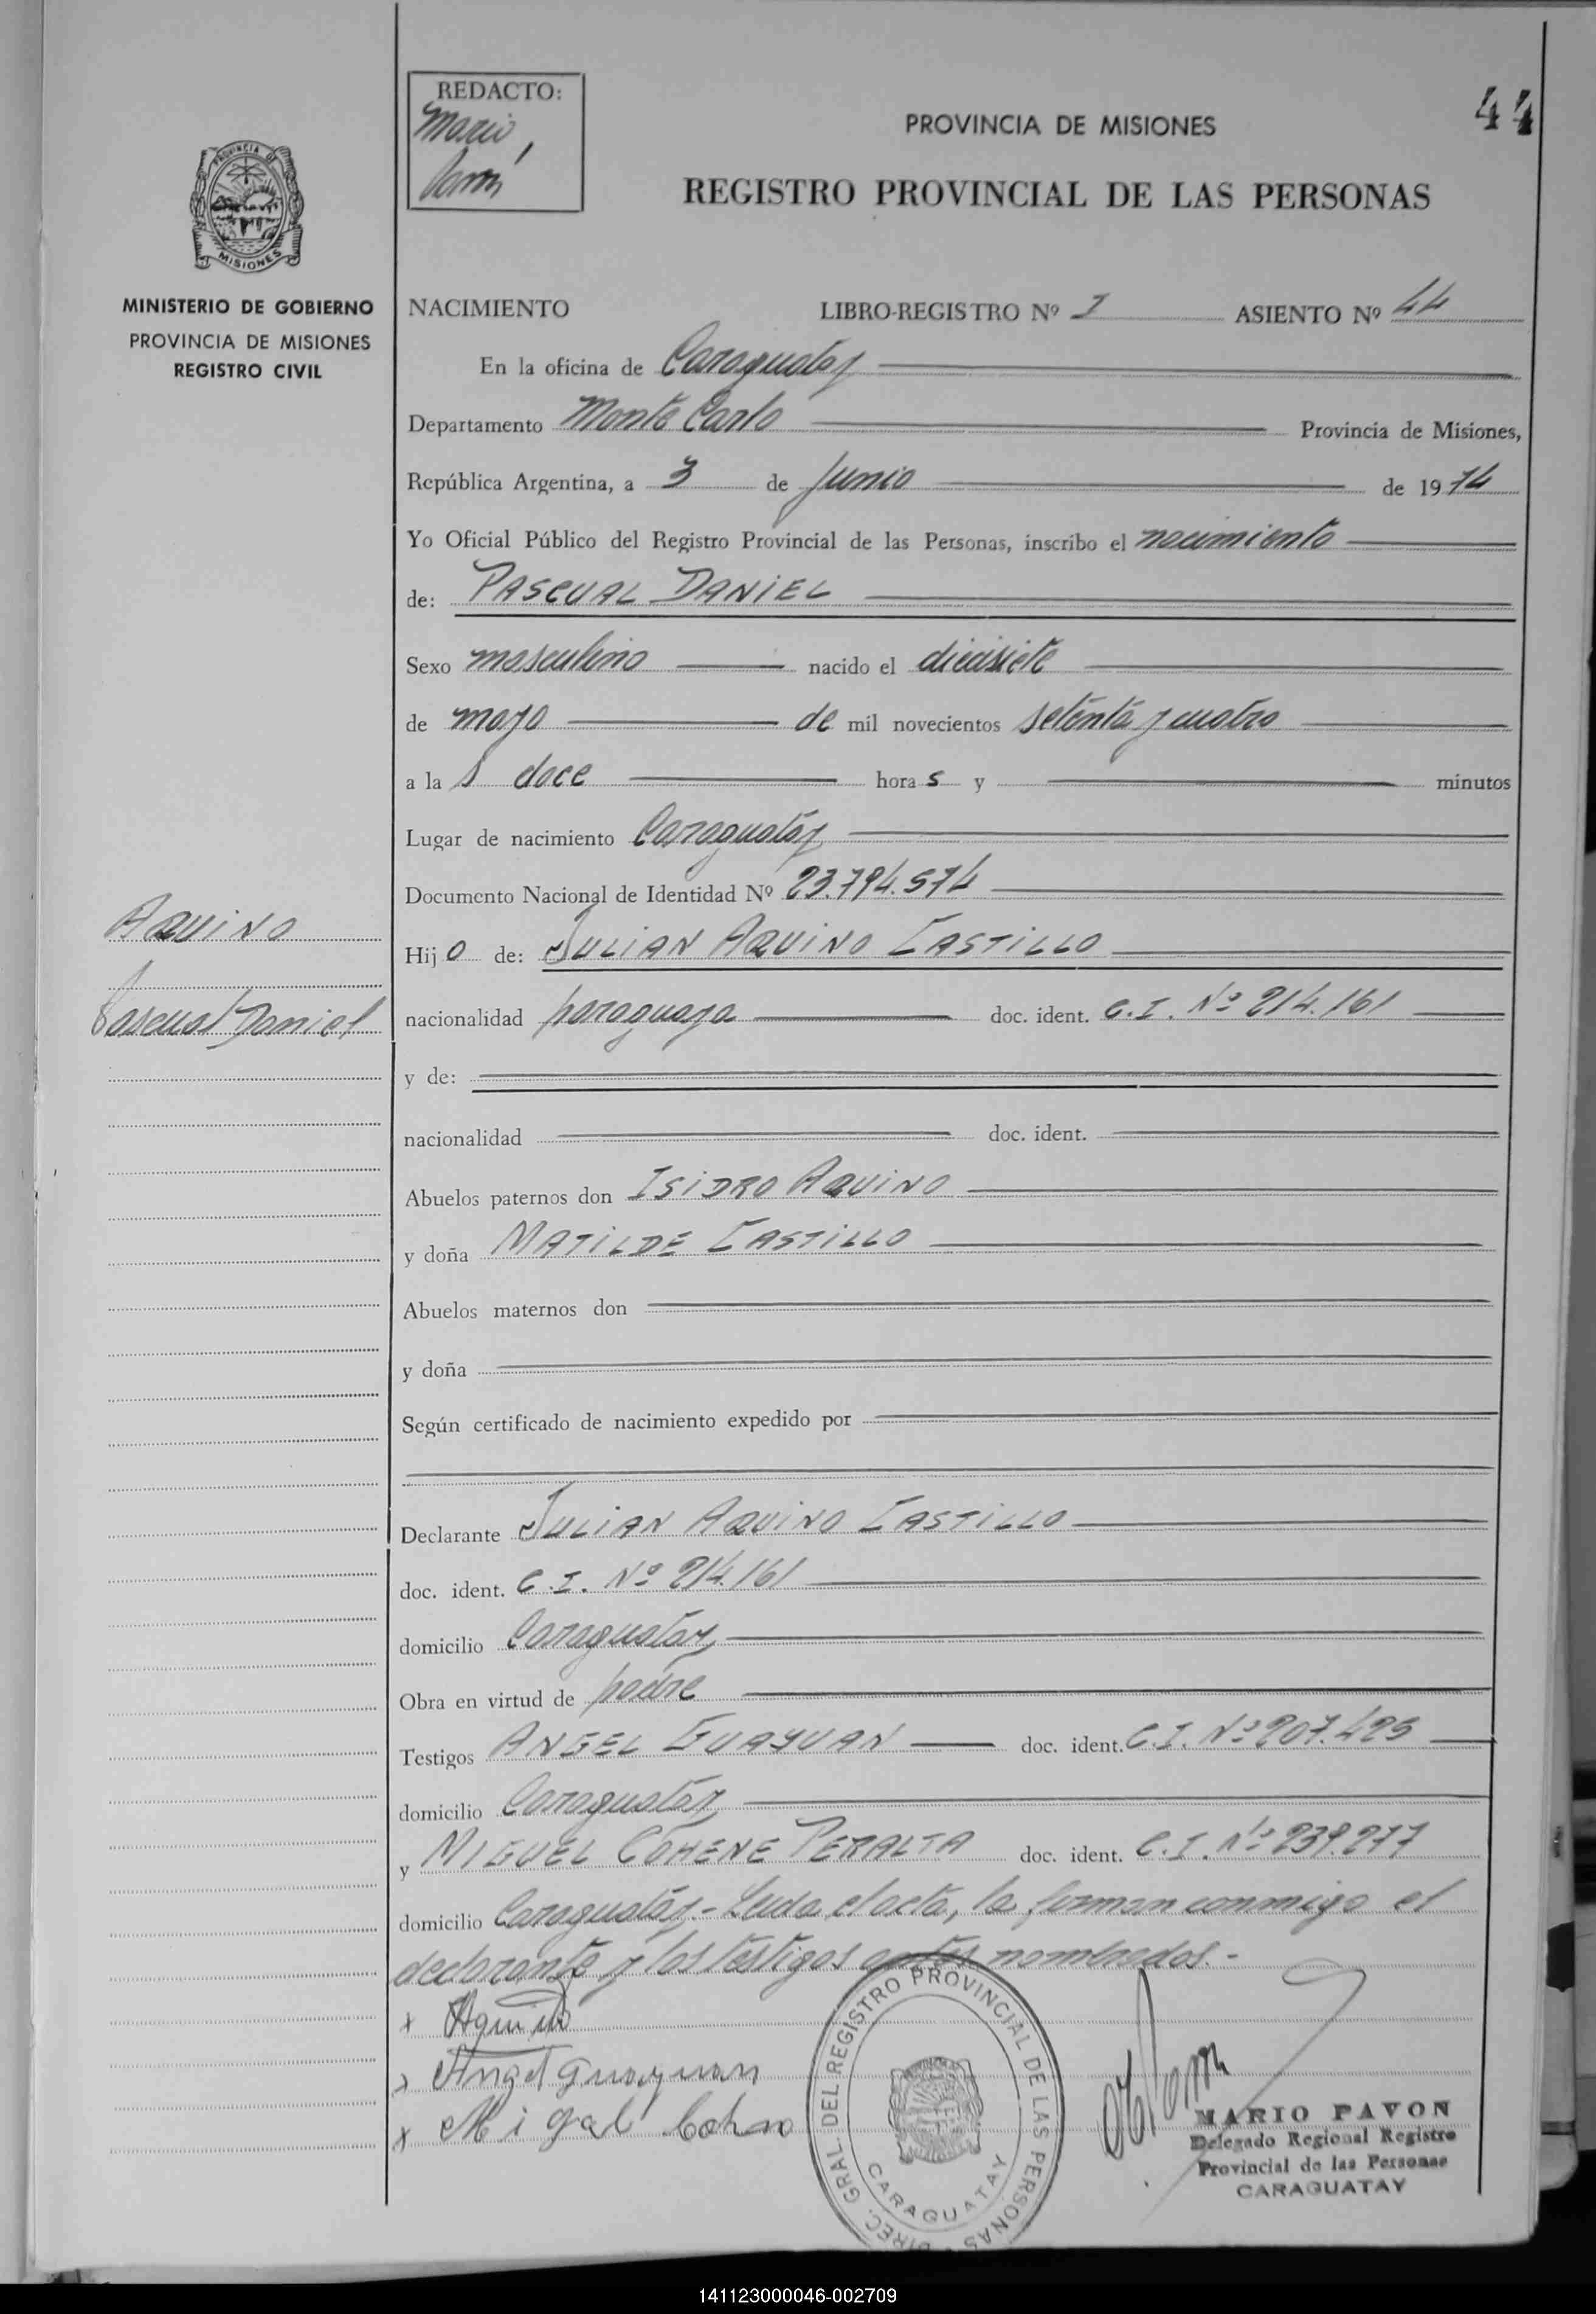 REDACTO:
Mario
44
PROVINCIA DE MISIONES
REGISTRO PROVINCIAL DE LAS PERSONAS
PROVINCIA DE
MISIONES
MINISTERIO DE GOBIERNO
PROVINCIA DE MISIONES
REGISTRO CIVIL
NACIMIENTO LIBRO-REGISTRO Nº I ASIENTO Nº 44
En la oficina de Caraguatay
Departamento Monte Carlo Provincia de Misiones,
República Argentina, a 3 de Junio de 1974
Yo Oficial Público del Registro Provincial de las Personas, inscribo el nacimiento
de: PASCUAL DANIEL
Sexo masculino nacido el diecisiete
de mayo de mil novecientos setenta y cuatro
a la s doce hora s y minutos
Lugar de nacimiento Caraguatáy
Documento Nacional de Identidad Nº 23.794.574
AQUINO
Hij o de: JULIAN AQUINO CASTILLO
Pascual Daniel
nacionalidad paraguaya doc. ident. C.I. Nº 214.161
y de:
nacionalidad doc. ident.
Abuelos paternos don ISIDRO AQUINO
y doña MATILDE CASTILLO
Abuelos maternos don
y doña
Según certificado de nacimiento expedido por
Declarante JULIAN AQUINO CASTILLO
doc. ident. C.I. Nº 214.161
domicilio Caraguatáy
Obra en virtud de padre
Testigos ANGEL GUAYUAN doc. ident. C.I. Nº 207.425
domicilio Caraguatáy
y MIGUEL COHENE PERALTA doc. ident. C.I. Nº 239.277
domicilio Caraguatáy.- Leida el acta, la forman conmigo el
declarante y los testigos antes nombrados.-
x Aquino
x Angel Guayuan
x Migel Cohen
DIREC. GRAL. DEL REGISTRO PROVINCIAL DE LAS PERSONAS
CARAGUATAY
MARIO PAVON
Delegado Regional Registro
Provincial de las Personas
CARAGUATAY
141123000046-002709